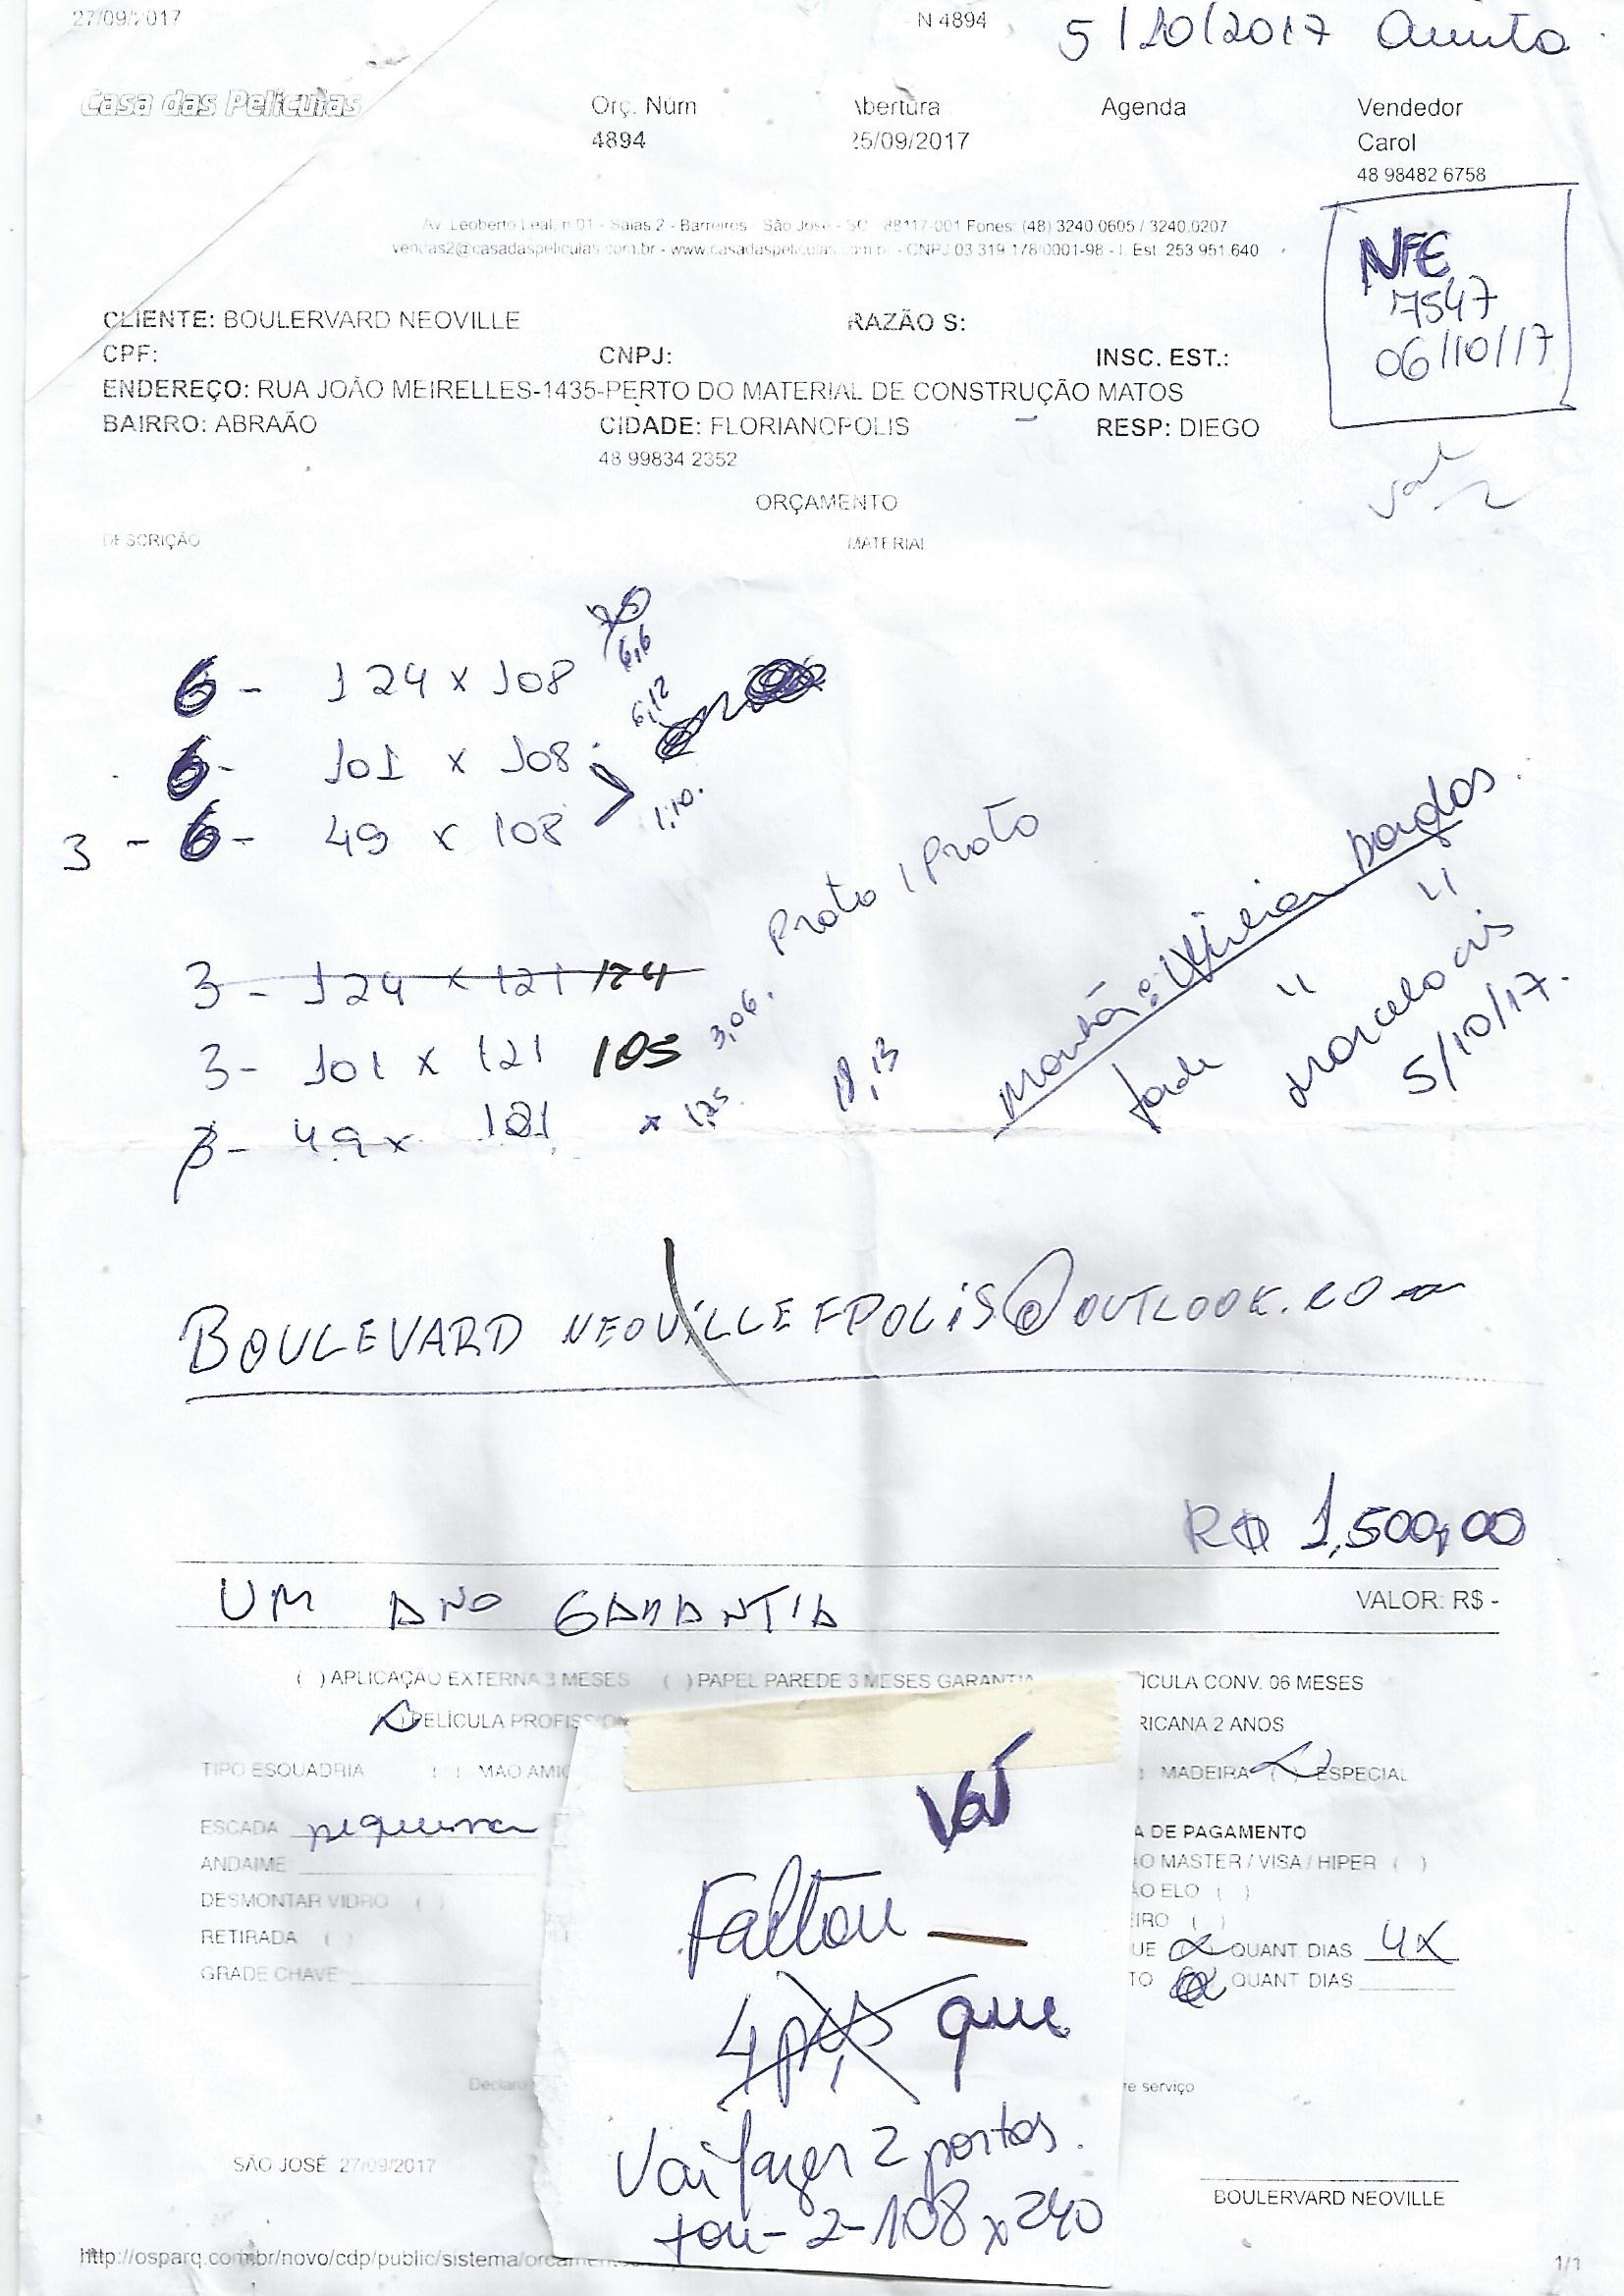 27/09/2017 N 4894 5/10/2017 Quinta
Casa das Películas Orç. Núm Abertura Agenda Vendedor
4894 25/09/2017 Carol
48 98482 6758
Av. Leoberto Leal, n 01 - Salas 2 - Barreiros - São José - SC - 88117-001 Fones: (48) 3240 0605 / 3240.0207
vendas2@casadaspeliculas.com.br - www.casadaspeliculas.com.br - CNPJ 03 319 178/0001-98 - I. Est. 253 951 640
NFE
7547
06/10/17
CLIENTE: BOULERVARD NEOVILLE RAZÃO S:
CPF: CNPJ: INSC. EST.:
ENDEREÇO: RUA JOÃO MEIRELLES-1435-PERTO DO MATERIAL DE CONSTRUÇÃO MATOS
BAIRRO: ABRAÃO CIDADE: FLORIANOPOLIS RESP: DIEGO
48 99834 2352
ORÇAMENTO
DESCRIÇÃO MATERIAL
70
6,6
6 - 124 x 108
6,12
6 - 101 x 108
3 - 6 - 49 x 108 1,10.
Prata / Prata
3 - 124 x 121 124
3 - 101 x 121 105 3,06.
3 - 49 x 121 x 1,75 18,13
Manhã: Wilian Douglas
tarde " "
Marcelo
5/10/17.
BOULEVARD NEOVILLEFPOLIS@OUTLOOK.CO
R$ 1,500,00
UM ANO GARANTIA VALOR: R$ -
( ) APLICAÇÃO EXTERNA 3 MESES ( ) PAPEL PAREDE 3 MESES GARANTIA ÍCULA CONV. 06 MESES
( ) PELÍCULA PROFISSION RICANA 2 ANOS
TIPO ESQUADRIA ( ) MÃO AMIG MADEIRA ( ) ESPECIAL
ESCADA pequena A DE PAGAMENTO
ANDAIME ÃO MASTER / VISA / HIPER ( )
DESMONTAR VIDRO ( ) ÃO ELO ( )
RETIRADA ( ) EIRO ( )
GRADE CHAVE UE ( ) QUANT DIAS 4x
TO ( ) QUANT DIAS
Val
Faltou —
4 pçs que
Vai fazer 2 portas.
tou - 2 - 108 x 240
Declaro re serviço
SÃO JOSÉ 27/09/2017
BOULERVARD NEOVILLE
http://osparq.com.br/novo/cdp/public/sistema/orcamento 1/1